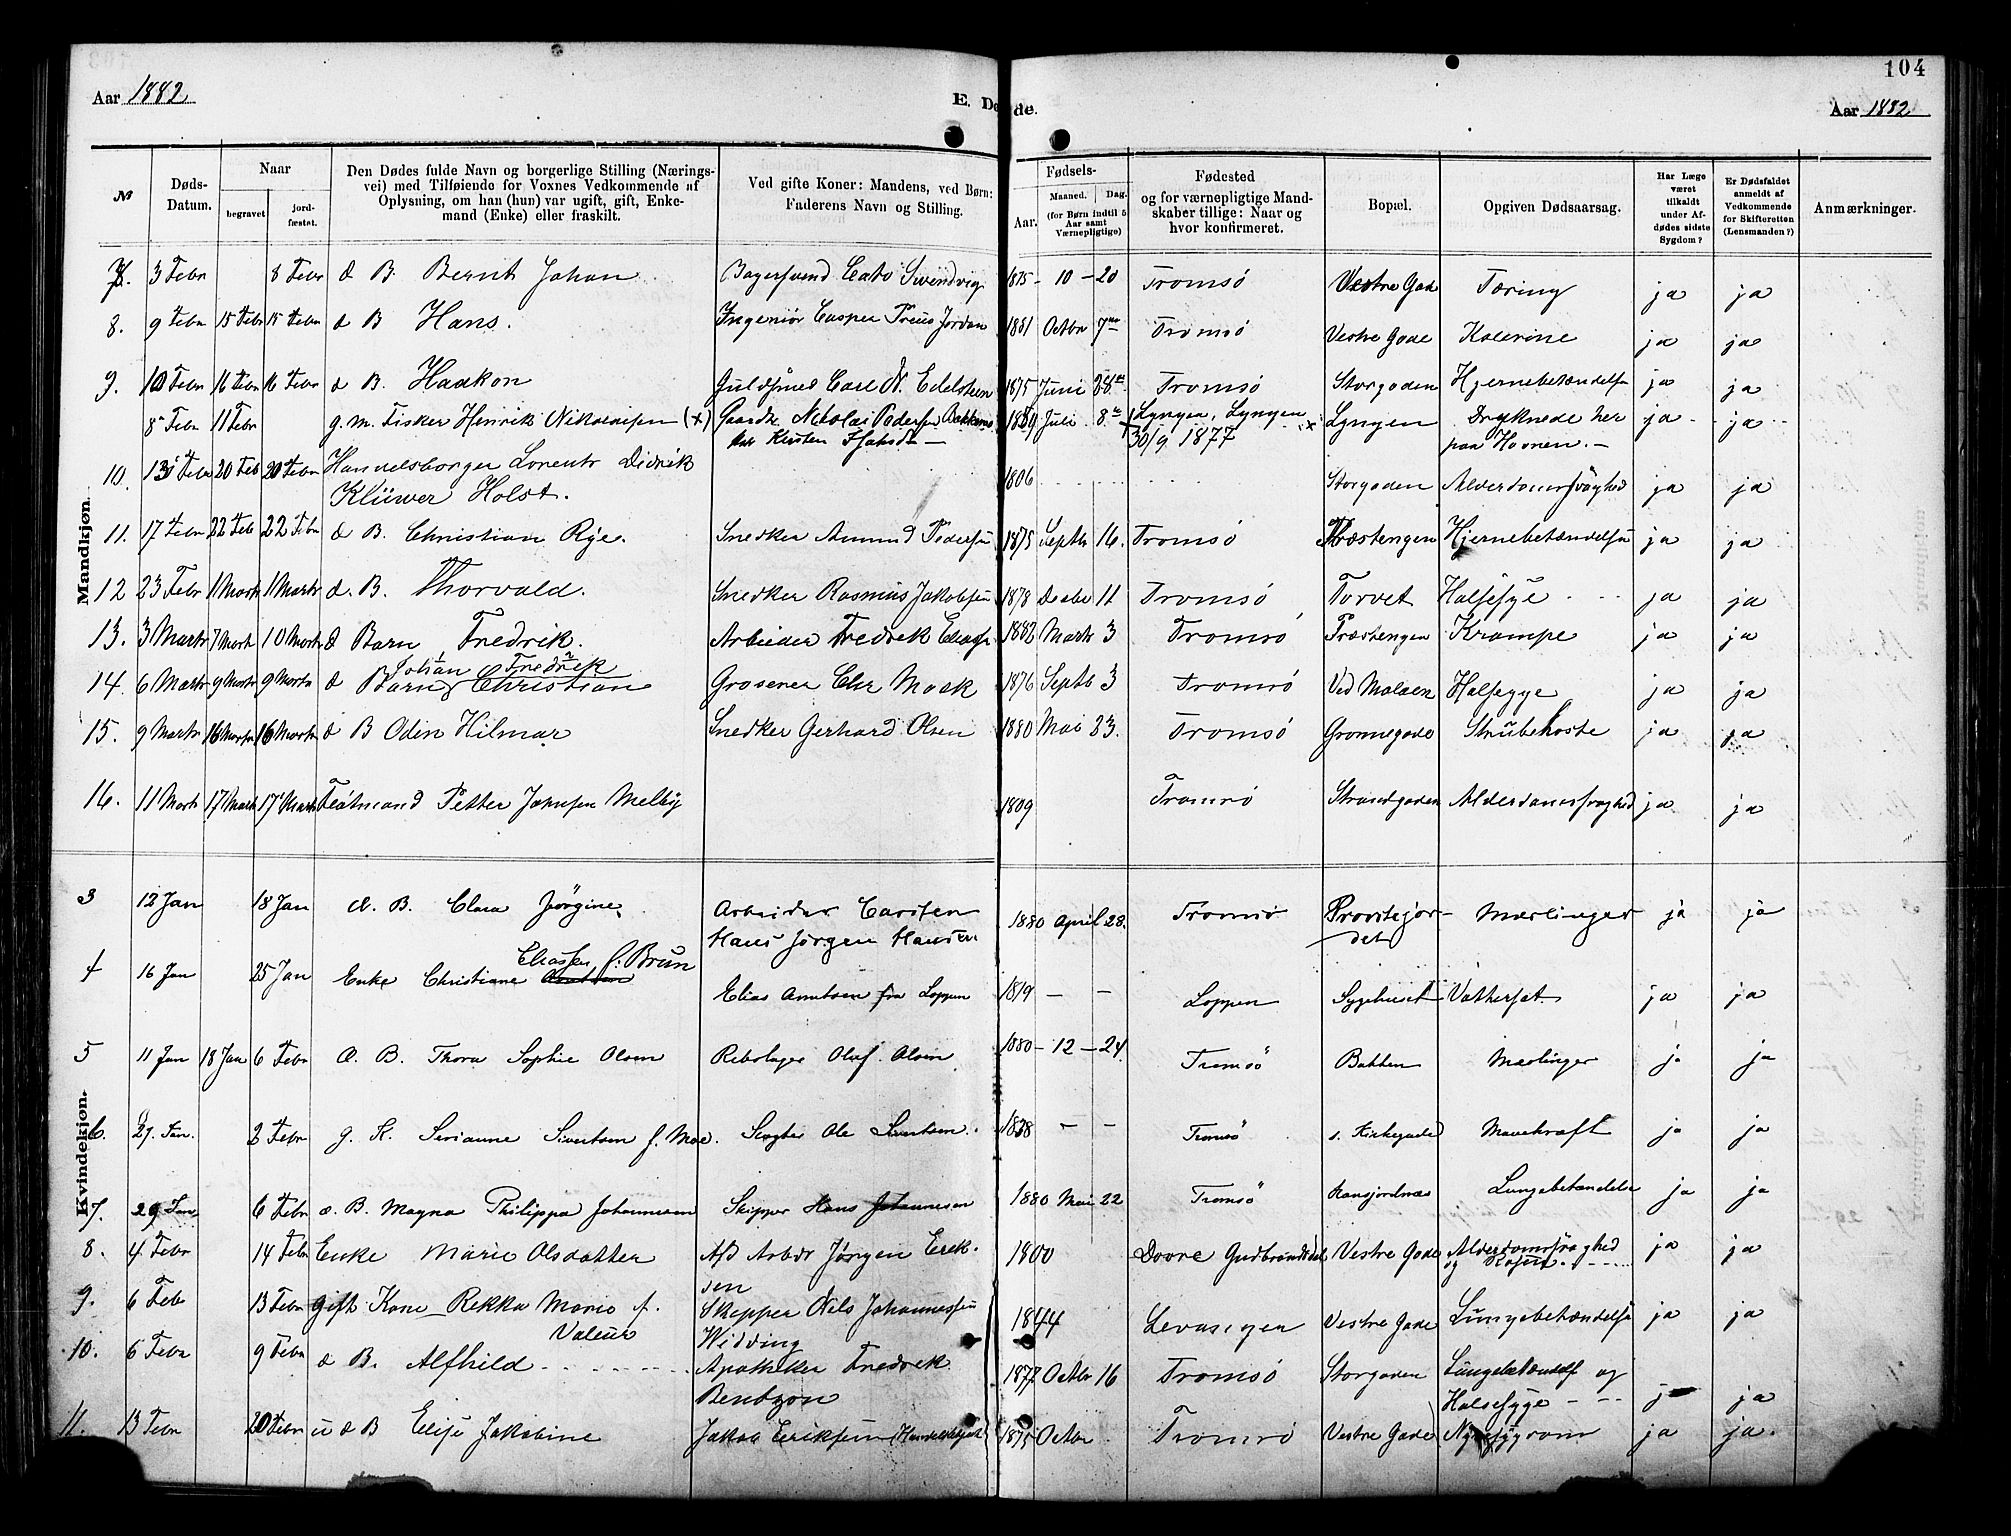 104
Aar 1882
E. Døde.
Aar 1882
№
Døds-Datum.
Naar
begravet
jord-fæstet.
Den Dødes fulde Navn og borgerlige Stilling (Nærings-
vei) med Tilføiende for Voxnes Vedkommende af
Oplysning, om han (hun) var ugift, gift, Enke-
mand (Enke) eller fraskilt.
Ved gifte Koner: Mandens, ved Børn:
Faderens Navn og Stilling.
Fødsels-
Aar.
Maaned.
Dag.
(for Børn indtil 5
Aar samt
Værnepligtige)
Fødested
og for værnepligtige Mand-
skaber tillige: Naar og
hvor konfirmeret.
Bopæl.
Opgiven Dødsaarsag.
Har Læge
været
tilkaldt
under Af-
dødes sidste
Sygdom?
Er Dødsfaldet
anmeldt af
Vedkommende
for Skifteretten
(Lensmanden?)
Anmærkninger.
Mandkjøn.
7. 3 Febr 8 Febr d B. Bernt Johan Bagersvend Cato Svendvig 1875 - 10 - 20 Tromsö Vestre Gade Tæring ja ja
8. 9 Febr 15 Febr 15 Febr d B Hans. Ingeniör Casper Preus Jordan 1881 Octbr 7 Tromsö Vestre Gade Kolerine ja ja
9. 10 Febr 16 Febr 16 Febr d B. Haakon Guldsmed Carl W. Edelsteen 1875 Juni 28 Tromsö Storgaden Hjernebetændelse ja ja
8 Febr 11 Febr g. m. Fisker Henrik Nikolaisen (x) Gaardbr Nikolai Pedersen 1859 Juli 8 Lyngen, Lyngen x Lyngen Druknede her ja ja
Kirsten 30/9 1877 paa Havnen. -
10. 13 Febr 20 Feb 20 Febr Handelsborger Lorents Didrik
Klüwer Holst. 1806 Storgaden Alderdomssvaghed ja ja
11. 17 Febr 22 Feb 22 Feb d B. Christian Rye. Snedker Amund Pedersen 1875 Septbr 16. Tromsö Præstengen Hjernebetændelse ja ja
12 23 Febr 1 Marts 1 Marts d. B. Thorvald. Snedker Rasmus Jakobsen 1878 Decbr 11 Tromsö Torvet Halssyge ja ja
13. 3 Marts 7 Marts 10 Marts d Barn Fredrik. Arbeider Fredrik 1882 Marts 3 Tromsö Præstengen Krampe ja ja
Johan Fredrik
14. 6 Marts 9 Marts 9 Marts d Barn Christian Grosserer Chr Mack 1876 Septb 3 Tromsö Ved Moloen Halssyge ja ja
15. 9 Marts 16 Marts 16 Marts d B Odin Hilmar Snedker Gerhard Olsen 1880 Mai 23. Tromsö Grønnegade Strubehoste ja ja
16. 11 Marts 17 Marts 17 Marts Petter Jakobsen Melby 1809 Tromsö Strandgaden Alderdomssvaghed ja ja
Kvindekjøn.
3 12 Jan 18 Jan d. B. Clara Jörgine. Arbeider Carsten 1880 April 28. Tromsö Provstejor- Mæslinger ja ja
Hans Jörgen Hansen det
Eliassen f. Brun
4 16 Jan 25 Jan Enke Christiane Arntsen Elias Arntsen fra Loppen 1819 - - Loppen Sygehuset Vattersot ja ja
5 11 Jan 18 Jan 6 Febr d. B. Thora Sophie Olsen Rebslager Oluf Olsen 1880 - 12 - 24 Tromsö Bakken Mæslinger ja ja
6. 27. Jan. 2 Febr g. K. Serianne Sivertsen f. Moe. Ole Sivertsen. 1838 - - Tromsö s. Kirkegade Mavekræft ja ja
7. 29 Jan 6 Febr d. B. Magna Philippa Johannesen Skipper Hans Johannesen 1880 Mai 22 Tromsö Lungebetændelse ja ja
8. 4. Febr 14 Febr Enke Marie Olsdatter Afd Arbdr Jörgen Erik- 1800 Dovre Gudbrandsdal Vestre Gade Alderdomssvaghed ja ja
sen og
9. 6 Feb 13 Febr Gift Kone Rekka Marie f. Skipper Nils Johannesen 1844 Levanger Vestre Gade Lungebetændelse ja ja
Valeur Widding
10. 6 Febr 9 Febr d B. Alfhild Apotheker Fredrik 1877 Octbr 16 Tromsö Storgaden Lungebetændelse og
Bentzon Halssyge ja ja
11. 13 Febr 20 Febr u d B Elise Jakobine Jakob Eriksen 1875 Octbr Tromsö Vestre Gade Nyresygdom ja ja.